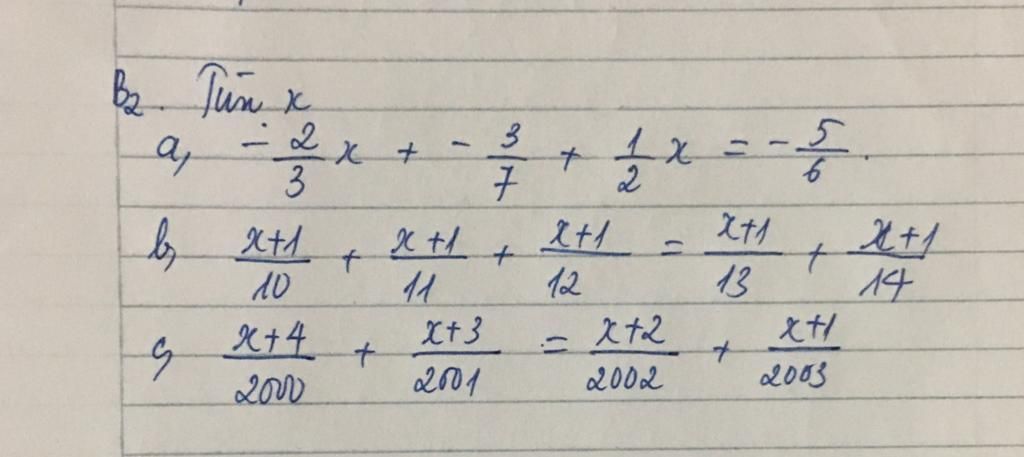 B2. Tìm x
a, -2/3 x + -3/7 + 1/2 x = -5/6.
b, x+1/10 + x+1/11 + x+1/12 = x+1/13 + x+1/14
c, x+4/2000 + x+3/2001 = x+2/2002 + x+1/2003